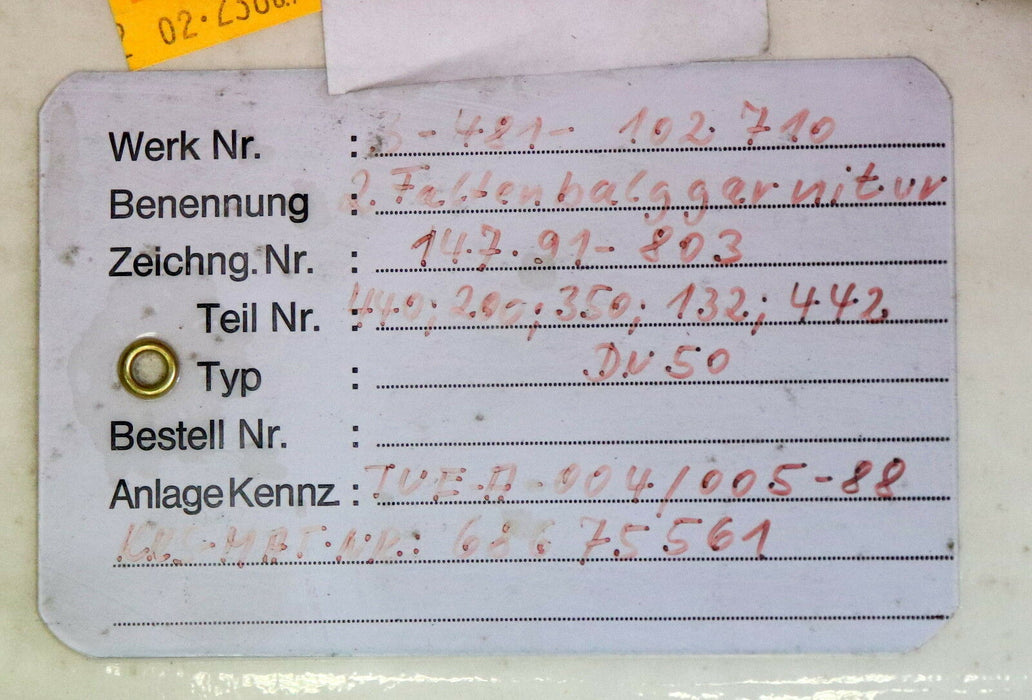 02.2500.
Werk Nr. : 3-481- 102.710
Benennung : 2 Faltenbalggarnitur
Zeichng.Nr. : 14.7.91- 803
Teil Nr. : 440; 200; 350; 132; 442
Typ : DN 50
Bestell Nr. :
AnlageKennz : TVE A-004/005-88
KKS-MAT-NR.: 68675561